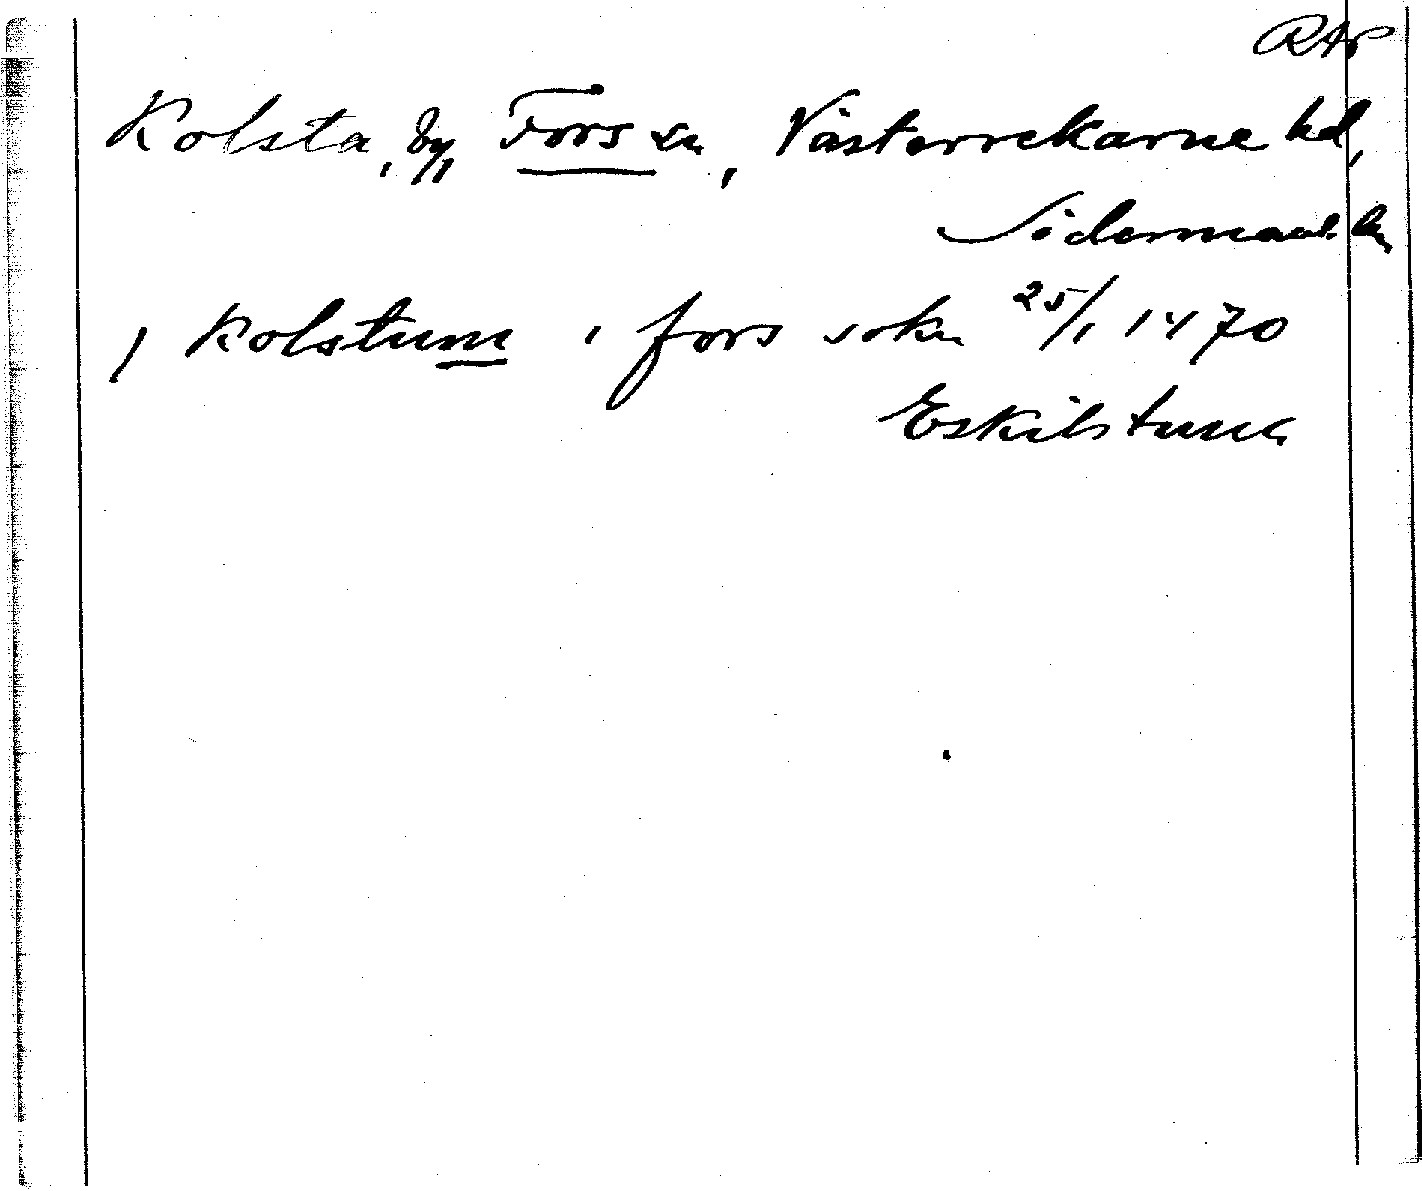 RAP
Kolsta, by, Fors sn, Västerrekarne hd,
Södermanl. ln
i Kolstum i fors sokn 25/1 1470
Eskilstuna